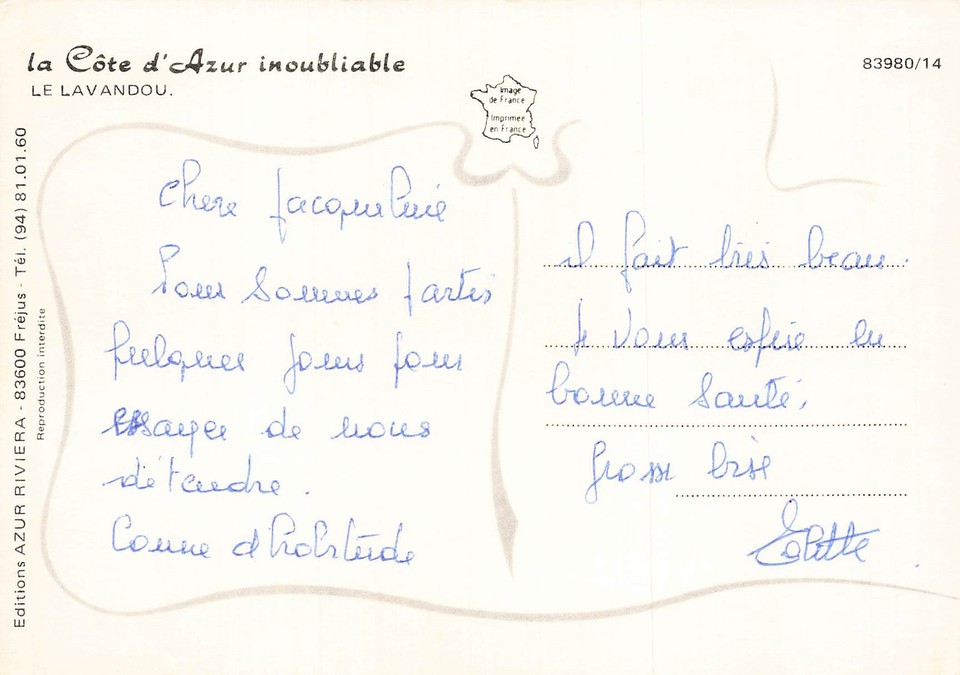 la Côte d'Azur inoubliable
LE LAVANDOU.
83980/14
Image
de France
Imprimée
en France
Editions AZUR RIVIERA - 83600 Fréjus - Tél. (94) 81.01.60
Reproduction interdite
Chere Jacqueline
Nous sommes partis
quelques jours pour
essayer de nous
détendre.
Comme d'habitude
il fait très beau.
Je vous espère en
bonne santé,
Grosse bise
Colette